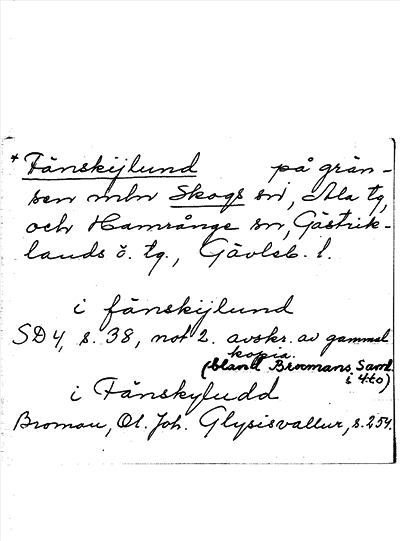 * Fänskijlund på grän-
sen mln Skogs sn, Ala tg,
och Hamrånge sn, Gästrik-
lands ö. tg., Gävleb. l.
i fänskijlund
SD 4, s. 38, not 2. avskr. av gammal
kopia.
(bland Broomans Saml.
i 4:to)
i Fänskyludd
Broman, Ol. Joh. Glysisvallur, s. 254.